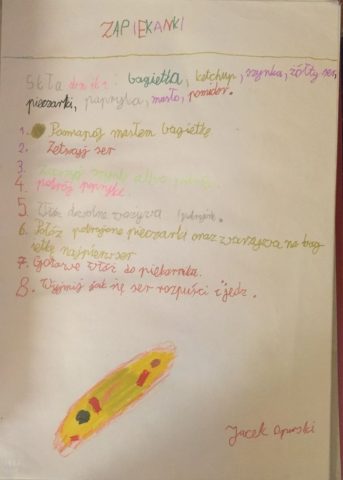 ZAPIEKANKI
Składniki: bagietka, ketchup, szynka, żółty ser,
pieczarki, papryka, masło, pomidor.
1. Posmaruj masłem bagietkę
2. Zetrzyj ser
3.
4. pokrój
5. Włóż dowolne warzywa.
6. Połóż pokrojone pieczarki oraz warzywa na bag
ietkę najpierw ser
7. Gotowe włóż do piekarnika.
8. Wyjmij jak się ser rozpuści i jedz.
Jacek